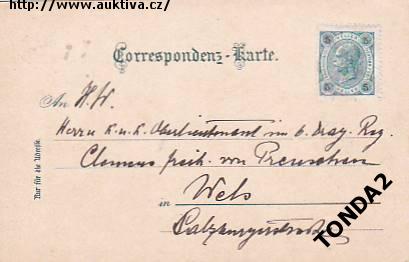 http://www.auktiva.cz/
Correspondenz-Karte.
5 5
5 5
An H. W.
Herrn k. u. k. Oberlieutenant im 6. Drag. Reg.
Clemens Freih. von Preuschen
Wels
in
Salzburgerstraße
Nur für die Adresse.
TONDA2